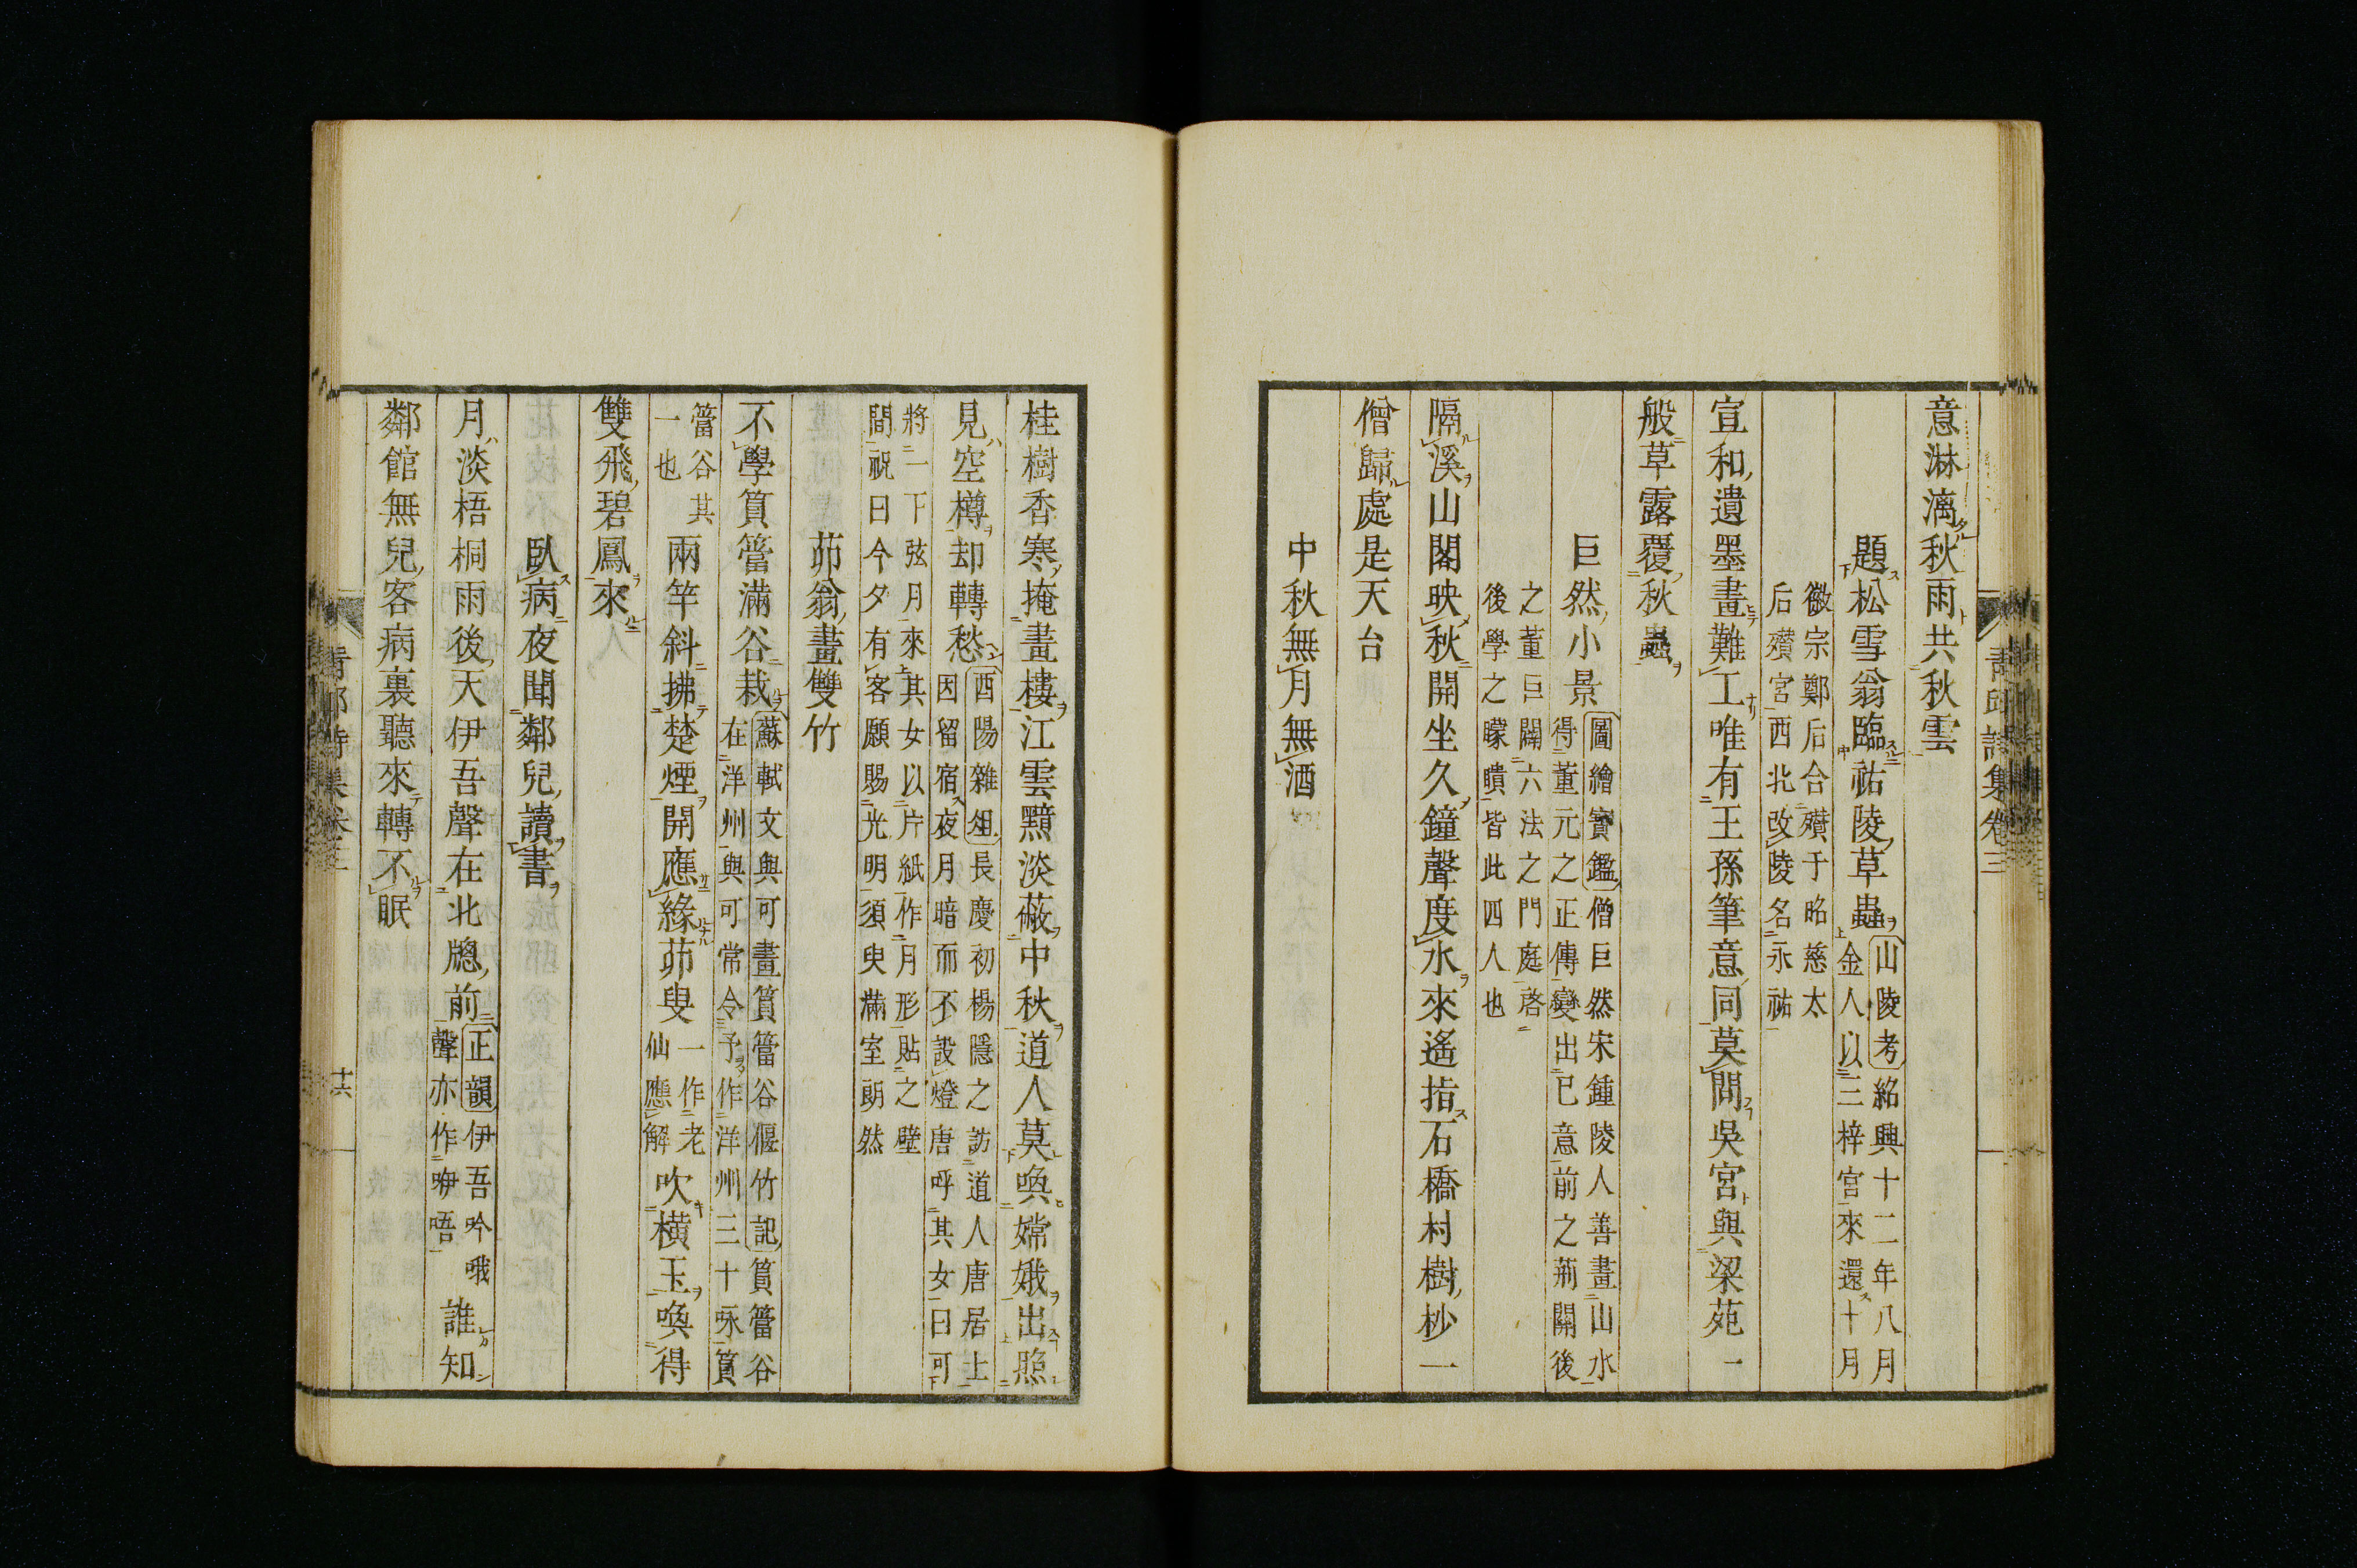 意淋漓秋雨共秋雲
題松雪翁臨祐陵草蟲
山陵考紹興十二年八月
金人以三梓宮來還十月
徽宗鄭后合殯于昭慈太
后殯宮西北改陵名永祐
宣和遺墨畫難工唯有王孫筆意同莫問吳宮與梁苑一
般草露覆秋蟲
巨然小景
圖繪寳鑑僧巨然宋鍾陵人善畫山水
得董元之正傳變出已意前之荊關後
之董巨闢六法之門庭啓
後學之矇瞶皆此四人也
隔溪山閣映秋開坐久鐘聲度水來遙指石橋村樹杪一
僧歸處是天台
中秋無月無酒
青邱詩集卷三
桂樹香寒掩畫樓江雲黯淡蔽中秋道人莫喚嫦娥出照
見空樽却轉愁
酉陽雜俎長慶初楊隱之訪道人唐居士
因留宿夜月暗而不設燈唐呼其女曰可
將一下弦月來其女以片紙作月形貼之壁
間祝曰今夕有客願賜光明須臾滿室朗然
茆翁畫雙竹
不學篔簹滿谷栽
蘇軾文與可畫篔簹谷偃竹記篔簹谷
在洋州與可常令予作洋州三十咏篔
簹谷其
一也
兩竿斜拂楚煙開應緣茆叟
一作老
仙應解
吹橫玉喚得
雙飛碧鳳來
臥病夜聞鄰兒讀書
月淡梧桐雨後天伊吾聲在北牕前
正韻伊吾吟哦
聲亦作咿唔
誰知
鄰館無兒客病裏聽來轉不眠
青邱詩集卷三
十六